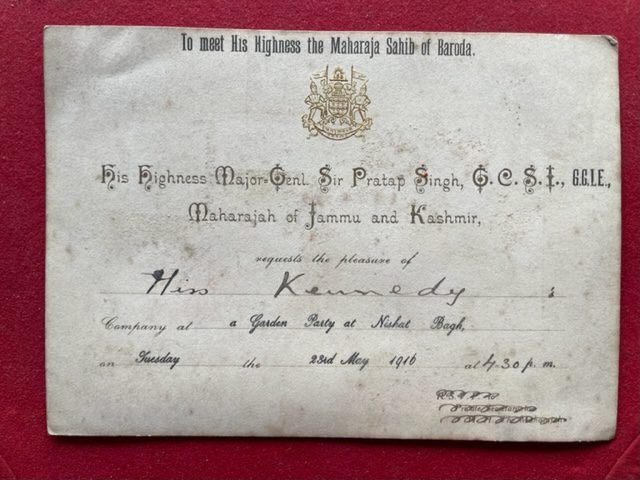 To meet His Highness the Maharaja Sahib of Baroda.
His Highness Major-Genl. Sir Pratap Singh, G. C. S. I., G.C.I.E.,
Maharajah of Jammu and Kashmir,
requests the pleasure of
Miss Kennedy s
Company at a Garden Party at Nishat Bagh,
on Tuesday the 23rd May 1916 at 4.30 p. m.